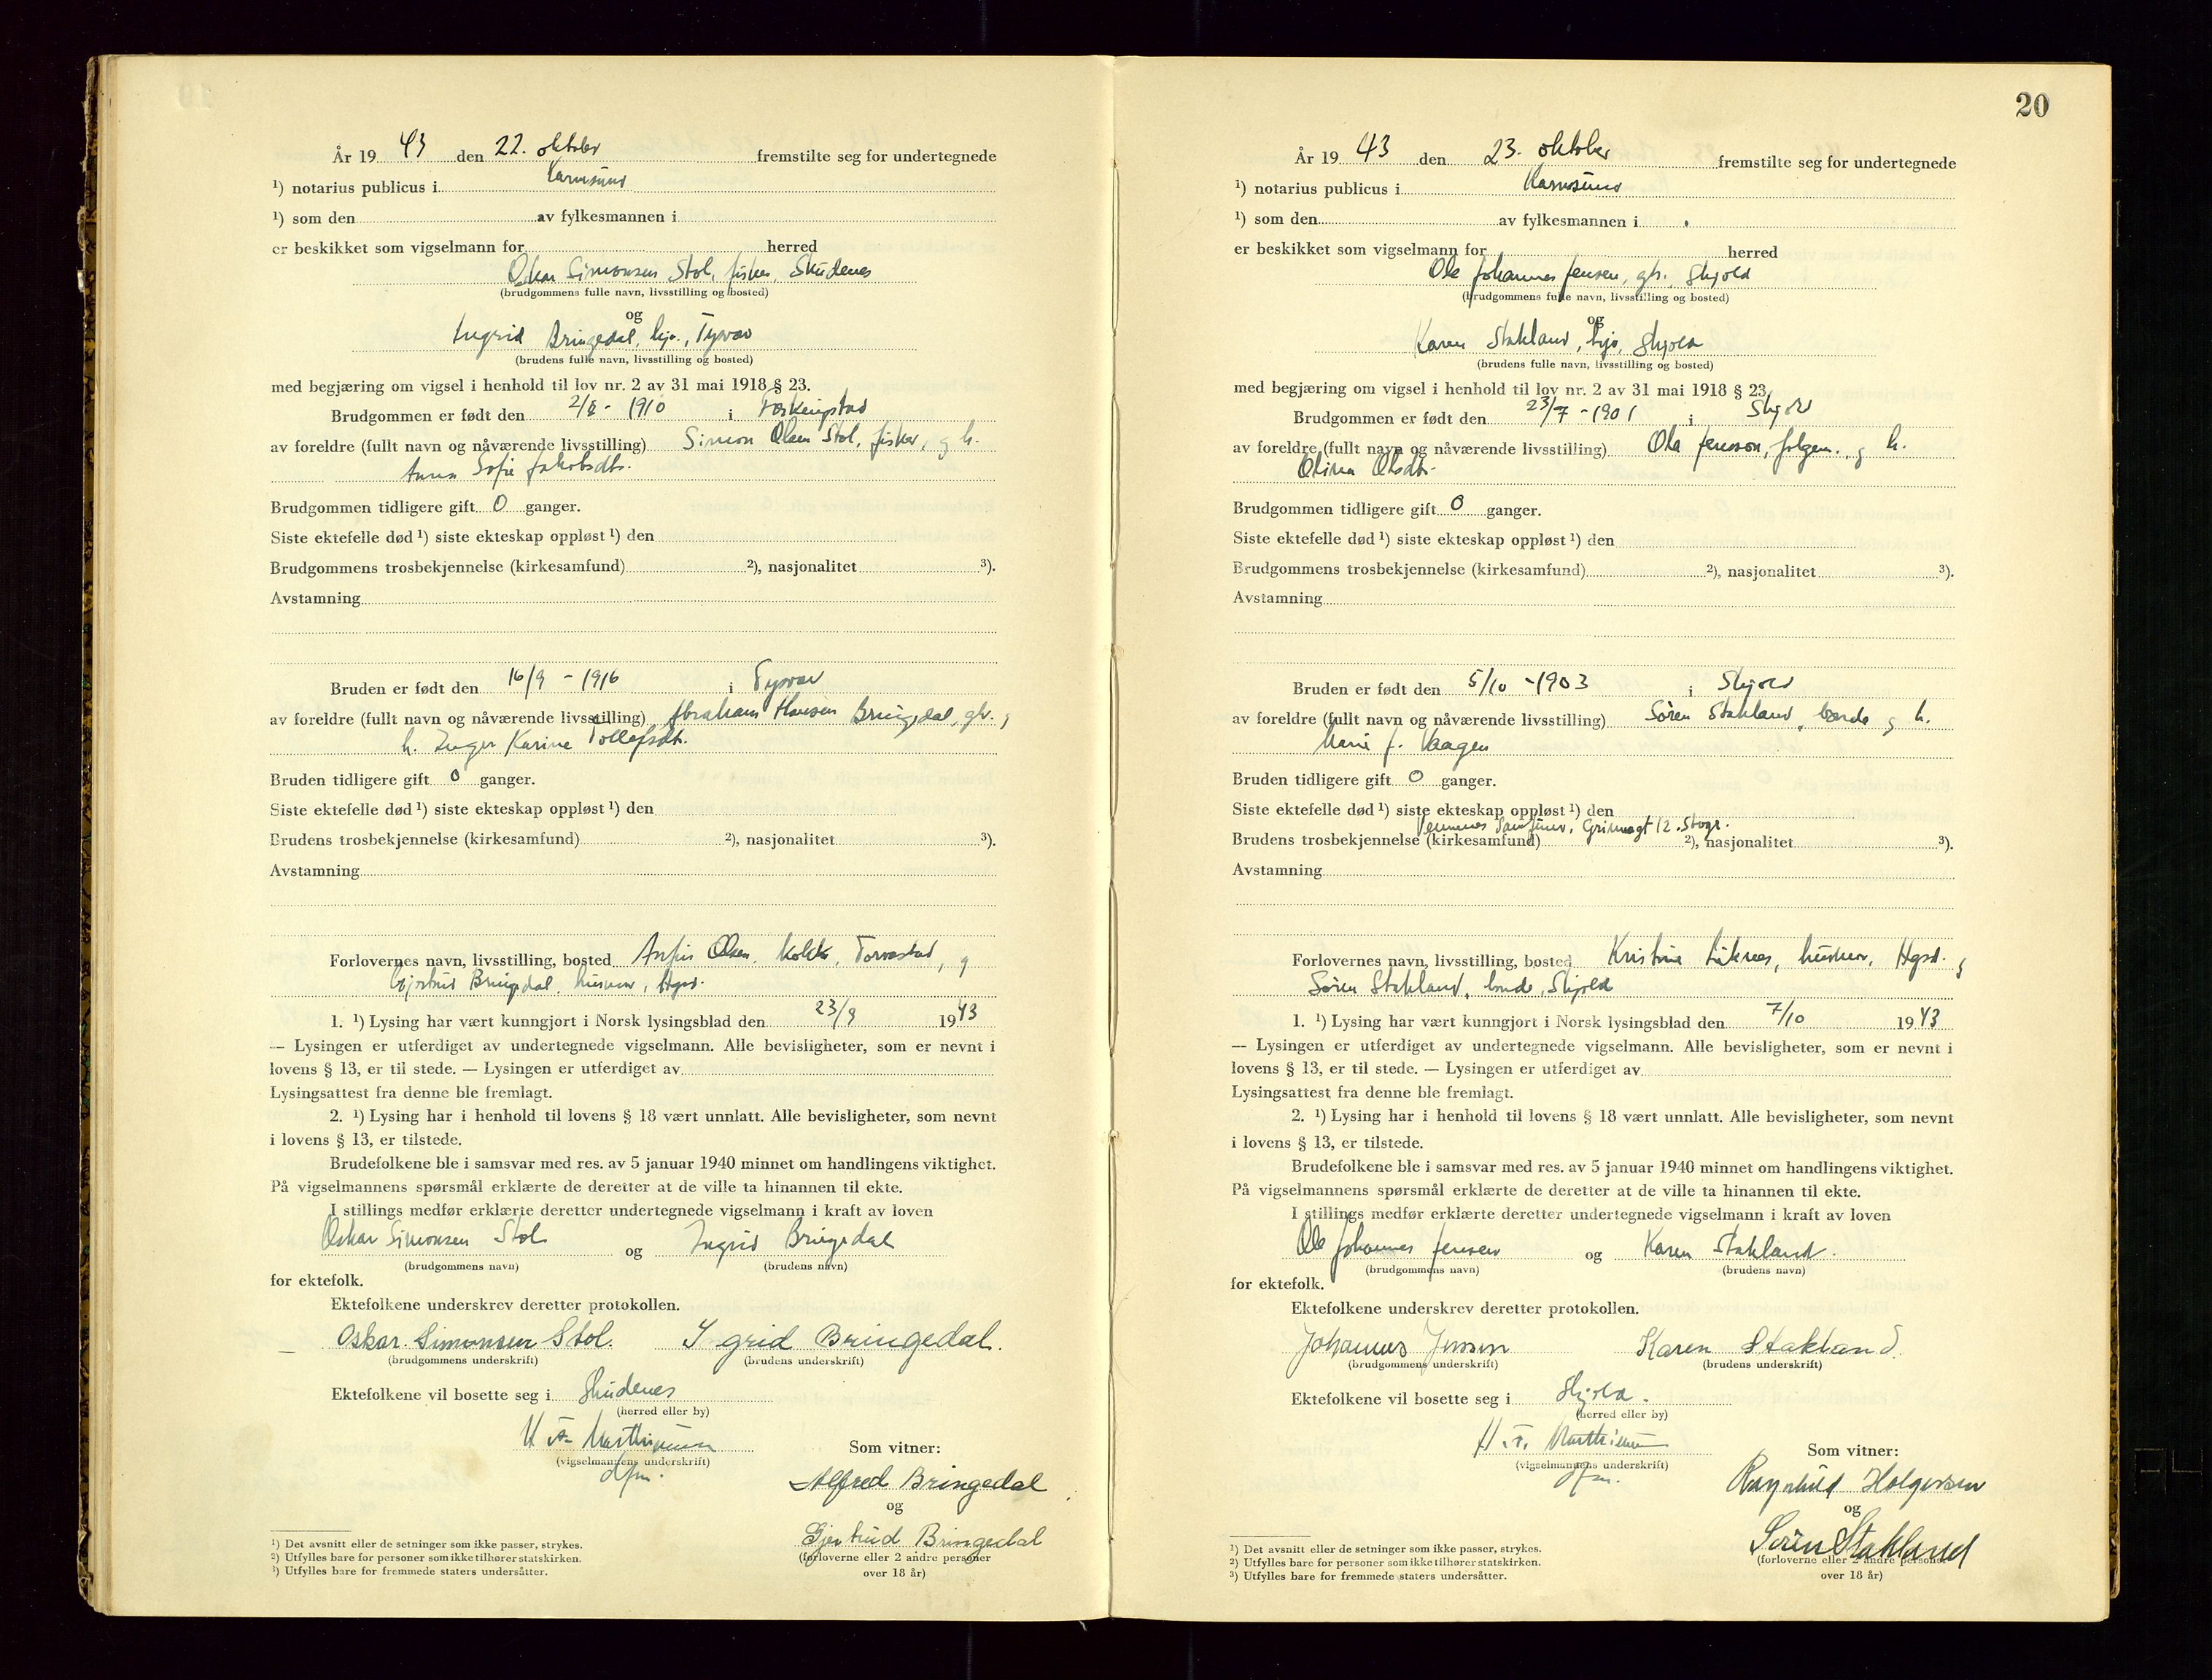 År 19 43 den 22. oktober fremstilte seg for undertegnede
¹) notarius publicus i Karmsund
¹) som den av fylkesmannen i
er beskikket som vigselmann for herred
Oskar Simonsen Stol, fisker, Skudenes
(brudgommens fulle navn, livsstilling og bosted)
og
Ingrid Bringedal, hjv., Tysvær
(brudens fulle navn, livsstilling og bosted)
med begjæring om vigsel i henhold til lov nr. 2 av 31 mai 1918 § 23.
Brudgommen er født den 2/8 - 1910 i
av foreldre (fullt navn og nåværende livsstilling) Simon Olsen Stol, fisker, og h.
Anna Sofie Jakobsdtr.
Brudgommen tidligere gift 0 ganger.
Siste ektefelle død ¹) siste ekteskap oppløst ¹) den
Brudgommens trosbekjennelse (kirkesamfund) ²), nasjonalitet ³).
Avstamning
Bruden er født den 16/9 - 1916 i Tysvær
av foreldre (fullt navn og nåværende livsstilling) Abraham Hansen Bringedal, gbr. og
h. Inger Karine Tollefsdtr.
Bruden tidligere gift 0 ganger.
Siste ektefelle død ¹) siste ekteskap oppløst ¹) den
Brudens trosbekjennelse (kirkesamfund) ²), nasjonalitet ³).
Avstamning
Forlovernes navn, livsstilling, bosted Olsen, Torvastad, og
Gjertrud Bringedal, husmor, Hgsd.
1. ¹) Lysing har vært kunngjort i Norsk lysingsblad den 23/9 1943
— Lysingen er utferdiget av undertegnede vigselmann. Alle bevisligheter, som er nevnt i
lovens § 13, er til stede. — Lysingen er utferdiget av
Lysingsattest fra denne ble fremlagt.
2. ¹) Lysing har i henhold til lovens § 18 vært unnlatt. Alle bevisligheter, som nevnt
i lovens § 13, er tilstede.
Brudefolkene ble i samsvar med res. av 5 januar 1940 minnet om handlingens viktighet.
På vigselmannens spørsmål erklærte de deretter at de ville ta hinannen til ekte.
I stillings medfør erklærte deretter undertegnede vigselmann i kraft av loven
Oskar Simonsen Stol og Ingrid Bringedal
(brudgommens navn) (brudens navn)
for ektefolk.
Ektefolkene underskrev deretter protokollen.
Oskar Simonsen Stol. Igrid Bringedal.
(brudgommens underskrift) (brudens underskrift)
Ektefolkene vil bosette seg i Skudenes
(herred eller by)
(vigselmannens underskrift)
Som vitner:
Alfred Bringedal
og
Gjertrud Bringedal
(forloverne eller 2 andre personer
over 18 år)
¹) Det avsnitt eller de setninger som ikke passer, strykes.
²) Utfylles bare for personer som ikke tilhører statskirken.
³) Utfylles bare for fremmede staters undersåtter.
20
År 19 43 den 23. oktober fremstilte seg for undertegnede
¹) notarius publicus i Karmsund
¹) som den av fylkesmannen i
er beskikket som vigselmann for herred
Ole Johannes Jensen, gbr., Skjold
(brudgommens fulle navn, livsstilling og bosted)
og
Karen Stakland, hjv, Skjold
(brudens fulle navn, livsstilling og bosted)
med begjæring om vigsel i henhold til lov nr. 2 av 31 mai 1918 § 23.
Brudgommen er født den 23/7 - 1901 i Skjold
av foreldre (fullt navn og nåværende livsstilling) Ole Jensson, folgem. og h.
Olina Olsdtr.
Brudgommen tidligere gift 0 ganger.
Siste ektefelle død ¹) siste ekteskap oppløst ¹) den
Brudgommens trosbekjennelse (kirkesamfund) ²), nasjonalitet ³).
Avstamning
Bruden er født den 5/10 - 1903 i Skjold
av foreldre (fullt navn og nåværende livsstilling) Søren Stakland, bonde og h.
Marie J. Vaagen
Bruden tidligere gift 0 ganger.
Siste ektefelle død ¹) siste ekteskap oppløst ¹) den
Vennenes Samfunn, 12. Stvgr.
Brudens trosbekjennelse (kirkesamfund) ²), nasjonalitet ³).
Avstamning
Forlovernes navn, livsstilling, bosted Kristine husmor, Hgsd. og
Søren Stakland, bonde, Skjold
1. ¹) Lysing har vært kunngjort i Norsk lysingsblad den 7/10 1943
— Lysingen er utferdiget av undertegnede vigselmann. Alle bevisligheter, som er nevnt i
lovens § 13, er til stede. — Lysingen er utferdiget av
Lysingsattest fra denne ble fremlagt.
2. ¹) Lysing har i henhold til lovens § 18 vært unnlatt. Alle bevisligheter, som nevnt
i lovens § 13, er tilstede.
Brudefolkene ble i samsvar med res. av 5 januar 1940 minnet om handlingens viktighet.
På vigselmannens spørsmål erklærte de deretter at de ville ta hinannen til ekte.
I stillings medfør erklærte deretter undertegnede vigselmann i kraft av loven
Ole Johannes Jensen og Karen Stakland.
(brudgommens navn) (brudens navn)
for ektefolk.
Ektefolkene underskrev deretter protokollen.
Johannes Jensen Karen Stakland
(brudgommens underskrift) (brudens underskrift)
Ektefolkene vil bosette seg i Skjold.
(herred eller by)
(vigselmannens underskrift)
Som vitner:
Ragnhild Holgersen
og
Søren Stakland
(forloverne eller 2 andre personer
over 18 år)
¹) Det avsnitt eller de setninger som ikke passer, strykes.
²) Utfylles bare for personer som ikke tilhører statskirken.
³) Utfylles bare for fremmede staters undersåtter.